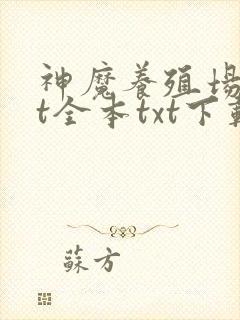 神魔養殖場
t全本txt下載
蘇方